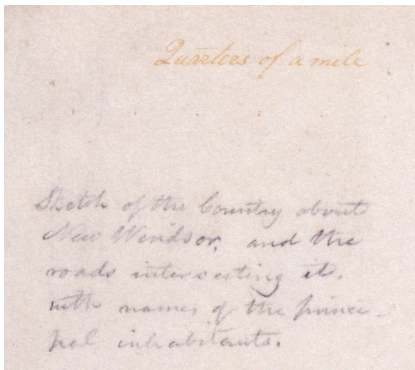 Quarters of a mile
Sketch of the Country about
New Windsor, and the
roads intersecting it,
with names of the prince-
pal inhabitants.